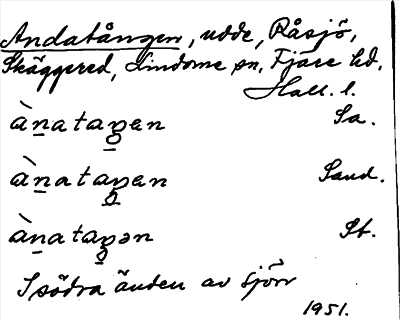 Andatången, udde, Råsjö,
Skäggered, Lindome sn, Fjäre hd.
Hall. l.
àn̲ataŋ̲en Sa.
àn̲ataŋ̲en Sand.
àn̲ataŋ̲ən St.
I södra änden av sjön
1951.